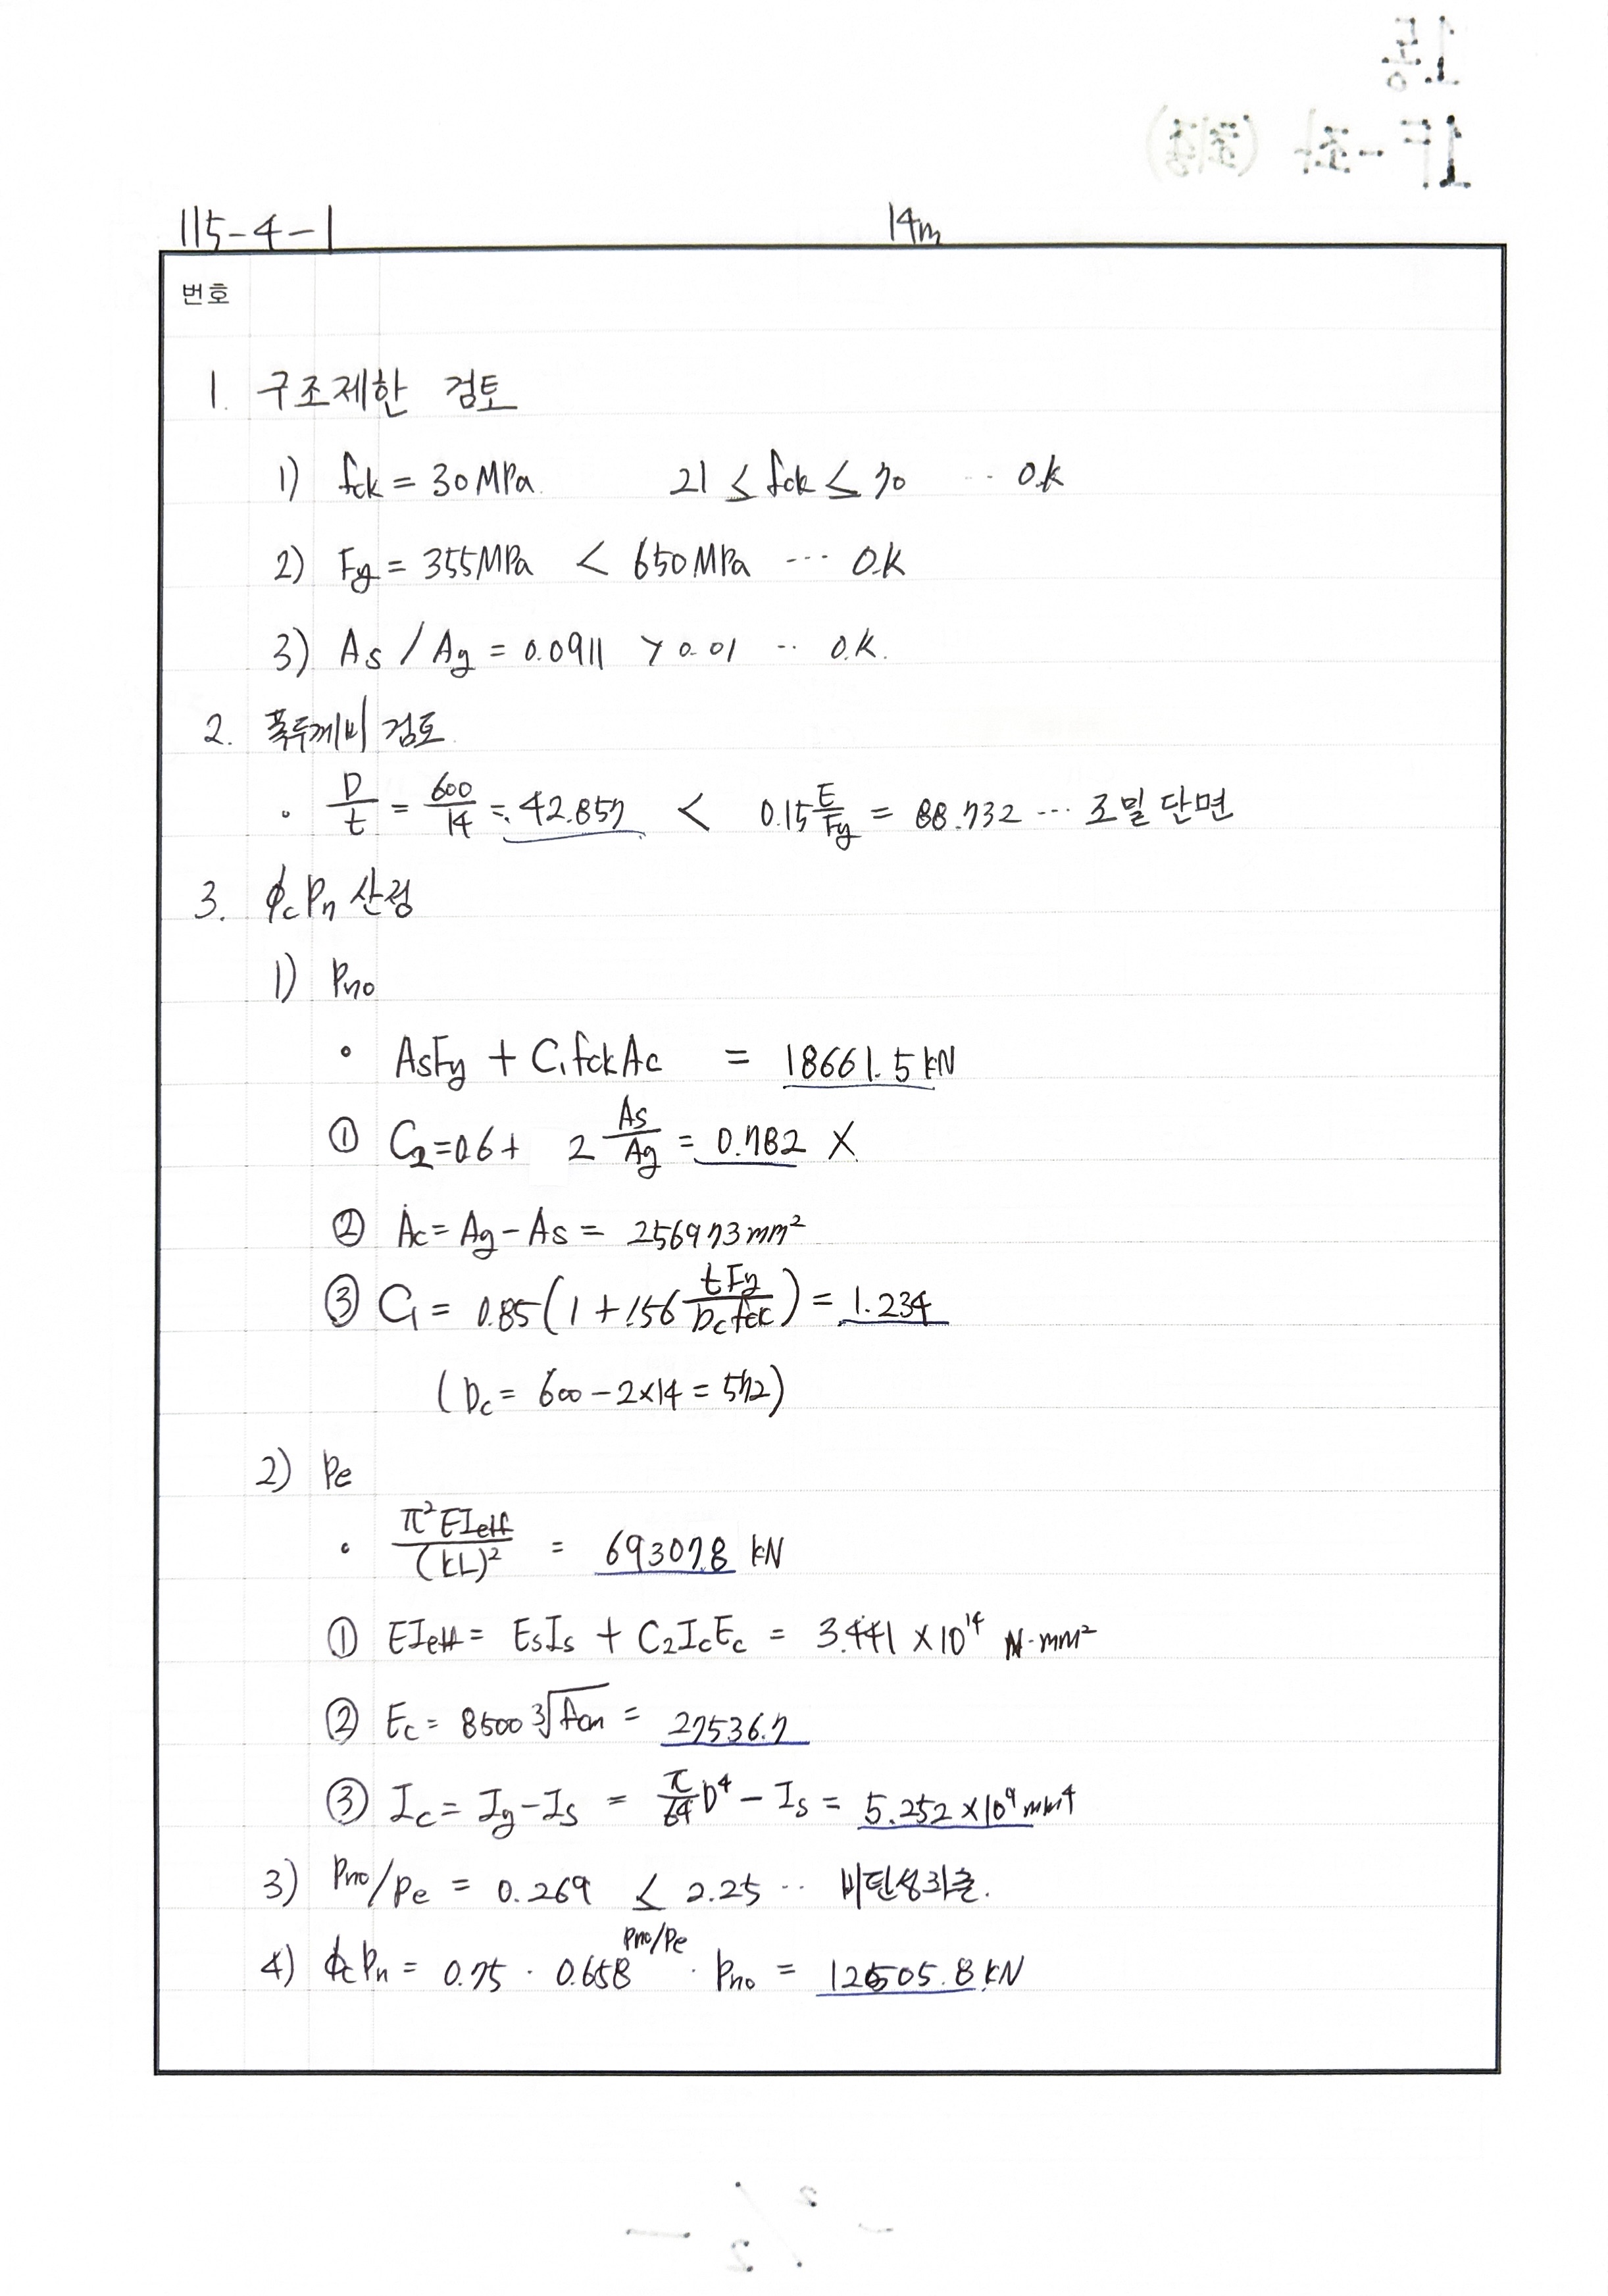 115-4-1 14m
번호
1. 구조제한 검토
1) fck = 30MPa. 21 ≤ fck ≤ 70 ·· O.K
2) Fy = 355MPa < 650MPa ··· O.K
3) As / Ag = 0.0911 > 0.01 ·· O.K.
2. 폭두께비 검토.
· D/t = 600/14 = 42.857 < 0.15 E/Fy = 88.732 ··· 조밀단면
3. ϕcPn 산정
1) Pno
· AsFy + C₁fckAc = 18661.5 kN
① C₂=0.6+ 2 As/Ag = 0.782 X
② Ac = Ag - As = 256973 mm²
③ C₁ = 0.85(1 + 1.56 tFy/Dcfck) = 1.234
(Dc = 600 - 2×14 = 572)
2) Pe
· π²EIeff/(kL)² = 69307.8 kN
① EIeff = EsIs + C₂IcEc = 3.441 ×10¹⁴ N·mm²
② Ec = 8500 ∛fcm = 27536.7
③ Ic = Ig - Is = π/64 D⁴ - Is = 5.252 ×10⁹ mm⁴
3) Pno/Pe = 0.269 ≤ 2.25 ·· 비탄성좌굴.
4) ϕcPn = 0.75 · 0.658^(Pno/Pe) · Pno = 12505.8 kN